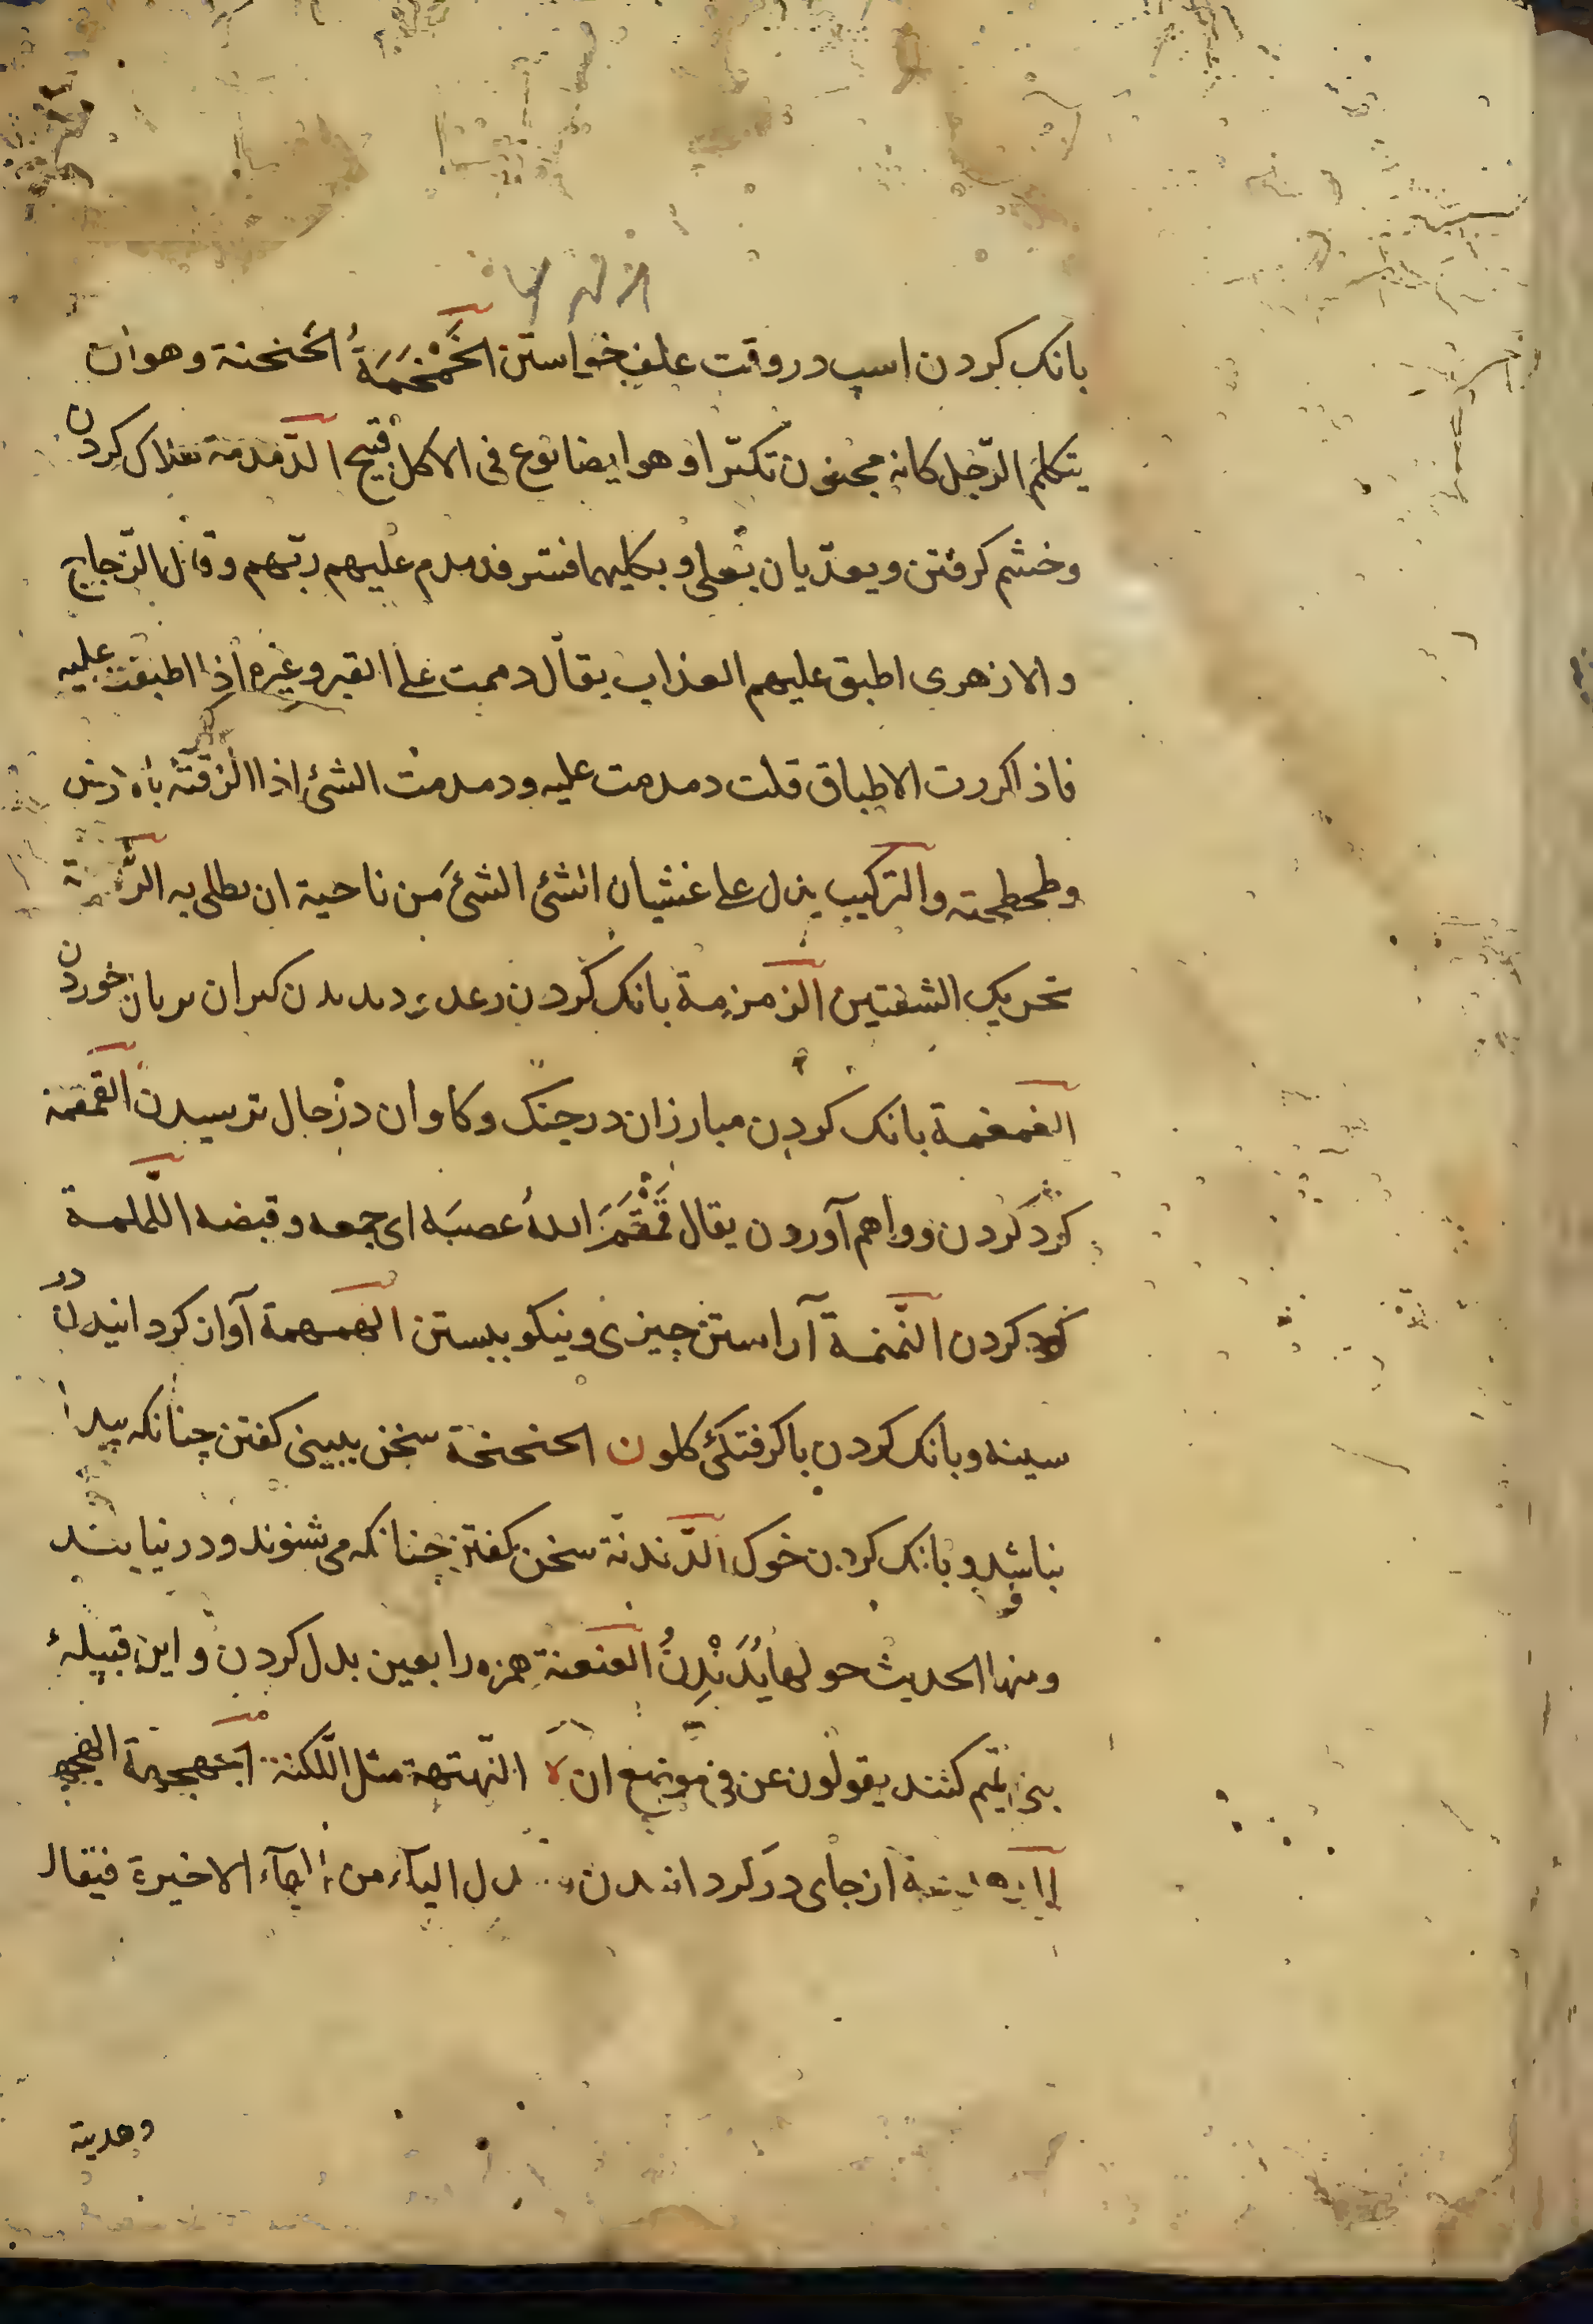 بانک کردن اسب در وقت علف خواستن الخَمْخَمَةُ الخنخنة و هو ان
یتکلم الرّجل کانه مجنون تکبّرا و هو ایضا نوع فی الاکل قبیح الدّمدمة هلاک کردن
و خشم کرفتن و یعدّیان بعلی و بکلیهما فسر فدمدم علیهم ربّهم و قال الزّجاج
و الازهری اطبق علیهم العذاب یقال دممت علی القبر و غیره اذا اطبقت علیه
فاذا کررت الاطباق قلت دمدمت علیه و دمدمت الشئ اذا الزقته بالارض
و طحطحته و الترکیب یدل علی غشیان الشئ الشئَ من ناحیة ان یطلی به
تحریک الشفتین الزمزمة بانک کردن رعد کبران خوردن
الغمغمة بانک کردن مبارزان در جنک و کاوان در حال ترسیدن القمقمة
کرد کردن و واهم آوردن یقال قَمْقَمَ اللهُ عصبَه ای جمعه و قبضه اللّملمة
کرد کردن النّمنمة آراستن چیزی و نیکو ببستن الهمهمة آواز کردانیدن در
سینه و بانک کردن با کرفتکئ کلو الخنخنة سخن ببینی کفتن چنانکه پیدا
نباشد و بانک کردن خوک الدّندنة سخن کفتن چنانکه می شنوند و درنیابند
و منها الحدیث حولها یُدَنْدِنُ العنعنة همزه را بعین بدل کردن و این قبیلهٔ
بنی تمیم کنند یقولون عن فی موضع ان التّهتهة مثل اللّکنة
از جای در کردانیدن الیاء من الهاء الاخیرة فیقال
وهدیته